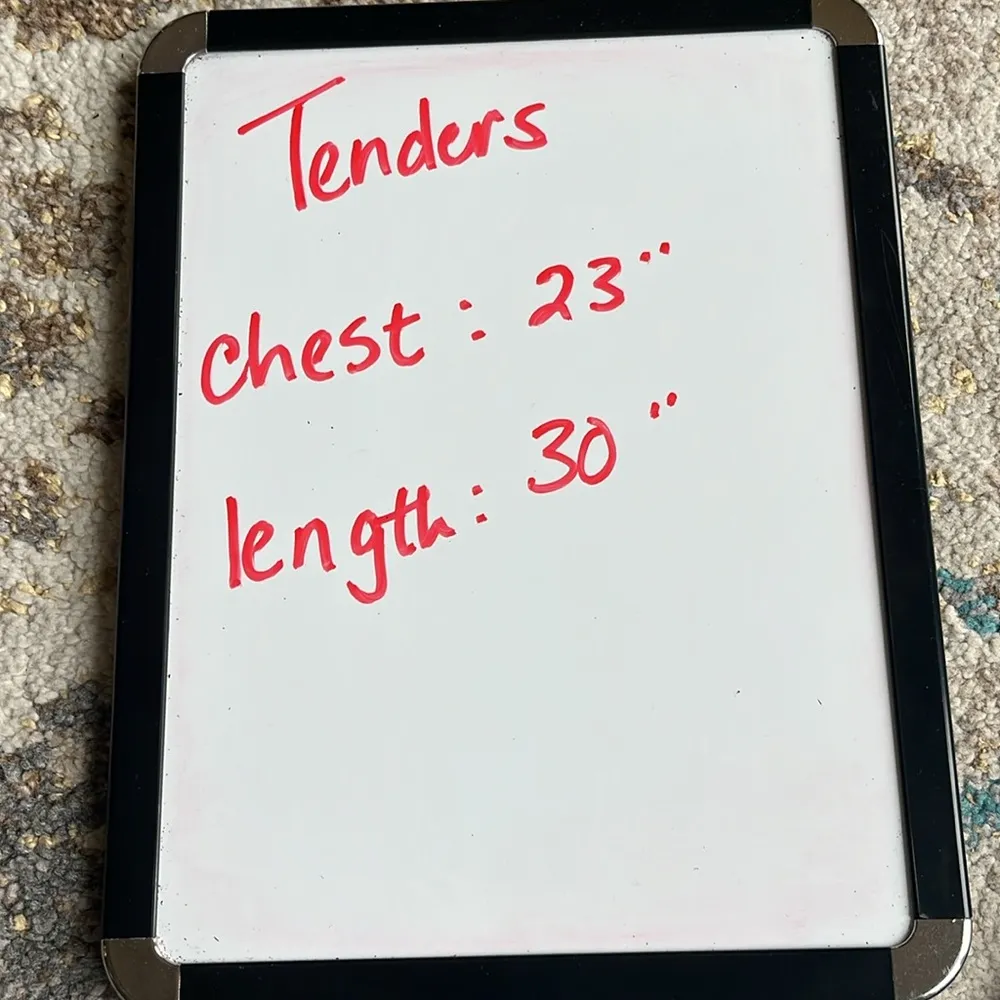 Tenders
chest : 23"
length : 30"